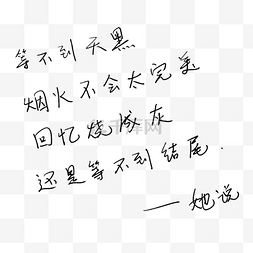 等不到天黑
烟火不会太完美
回忆烧成灰
还是等不到结尾.
——她说